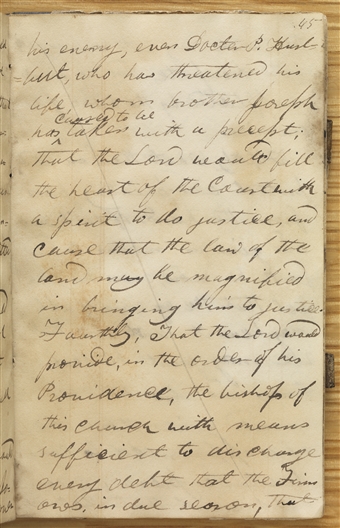 45
his enemy, even Docter P. Hurl-
but, who has threatened his
life, whom brother Joseph
caused to be
has taken with a precept;
that the Lord would fill
the heart of the Court with
a spirit to do justice, and
cause that the law of the
land may be magnified
in bringing him to justice.
Fourthly, That the Lord would
provide, in the order of his
Providence, the bishop of
this church with means
sufficient to discharge
every debt that the Firm
owes, in due season, that